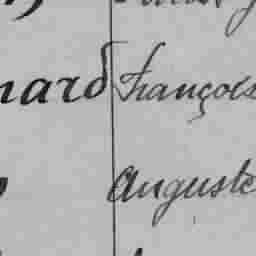 nard François
Auguste